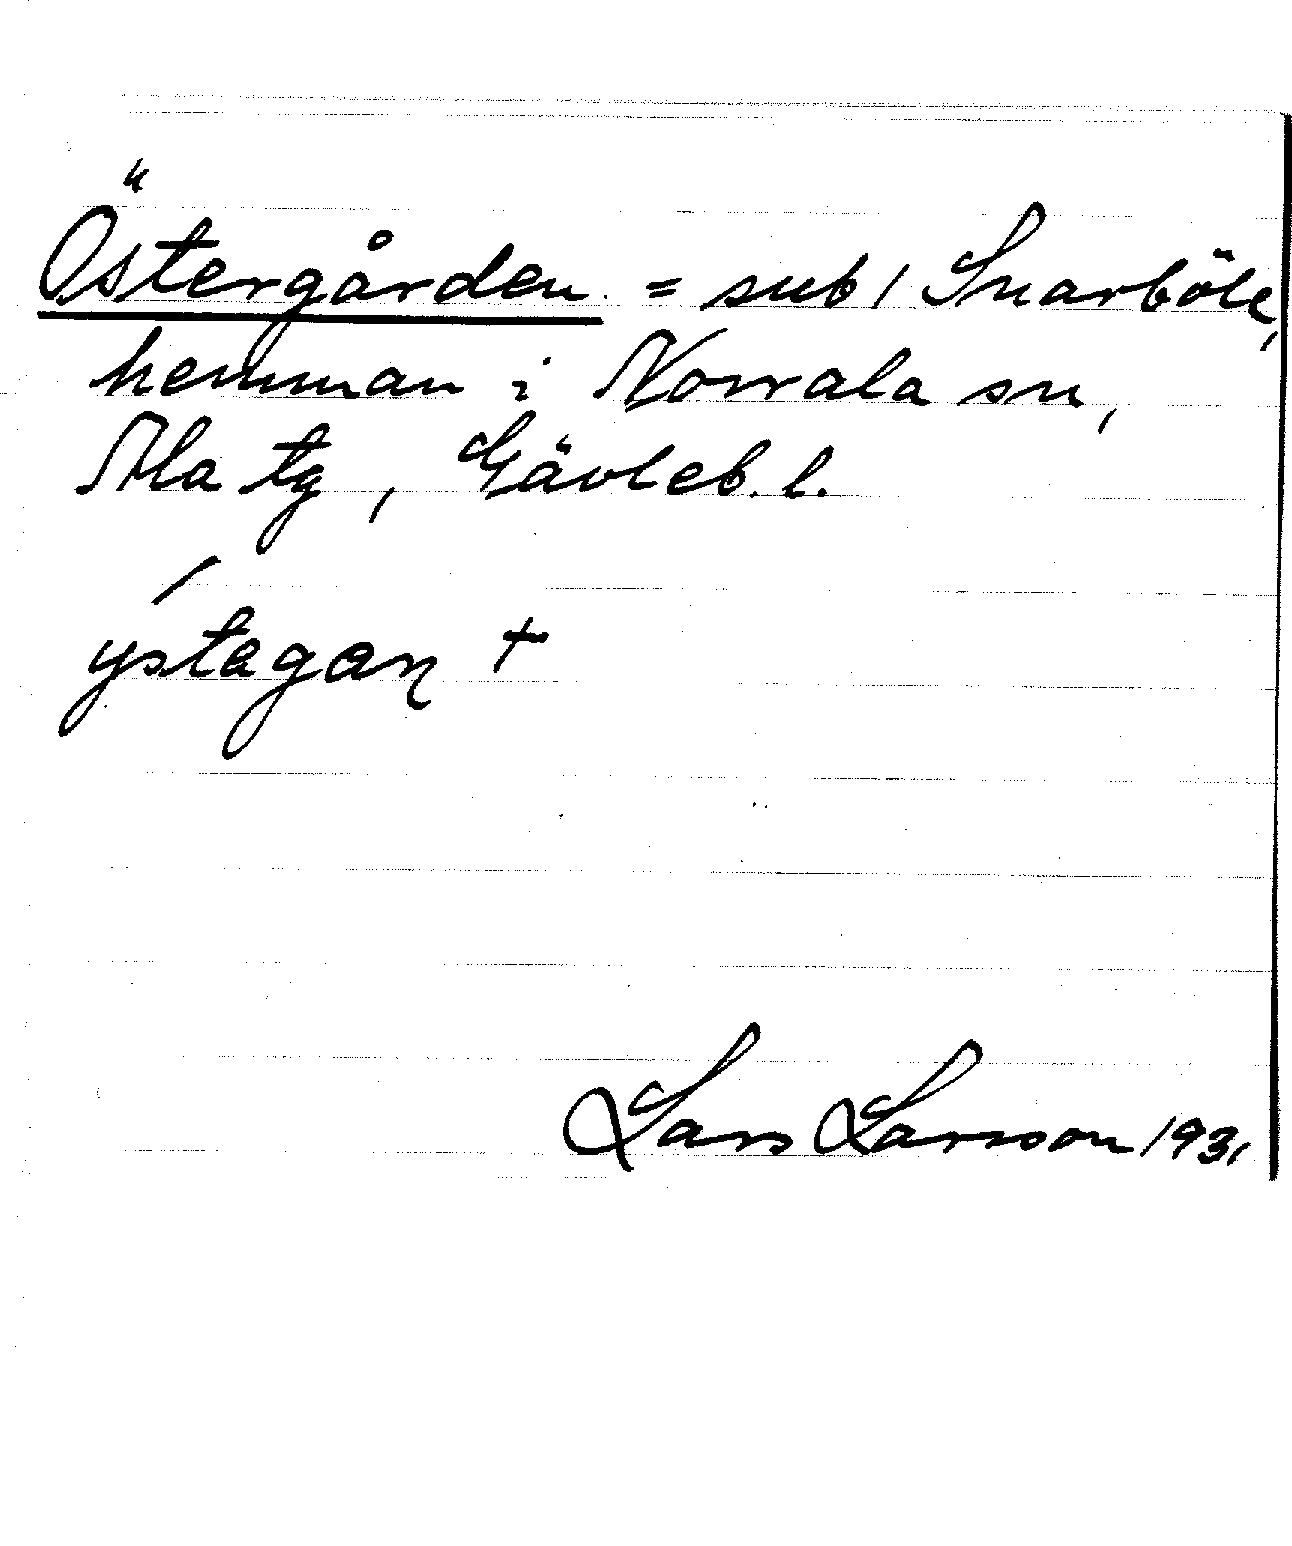 Östergården = sub 1 Snarböle,
hemman i Norrala sn,
Ala tg, Gävleb. l.
ýstagaɳ +
Lars Larsson 1931